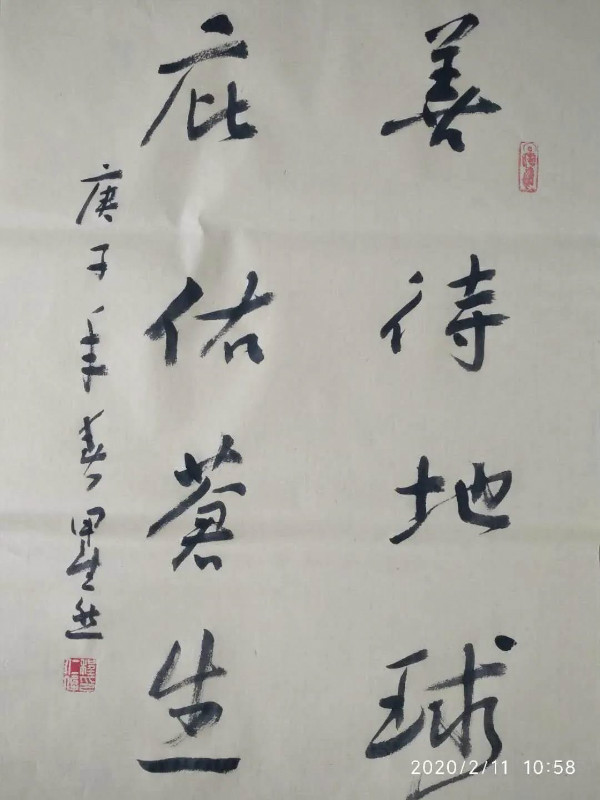 善待地球
庇佑蒼生
庚子年春
2020/2/11 10:58